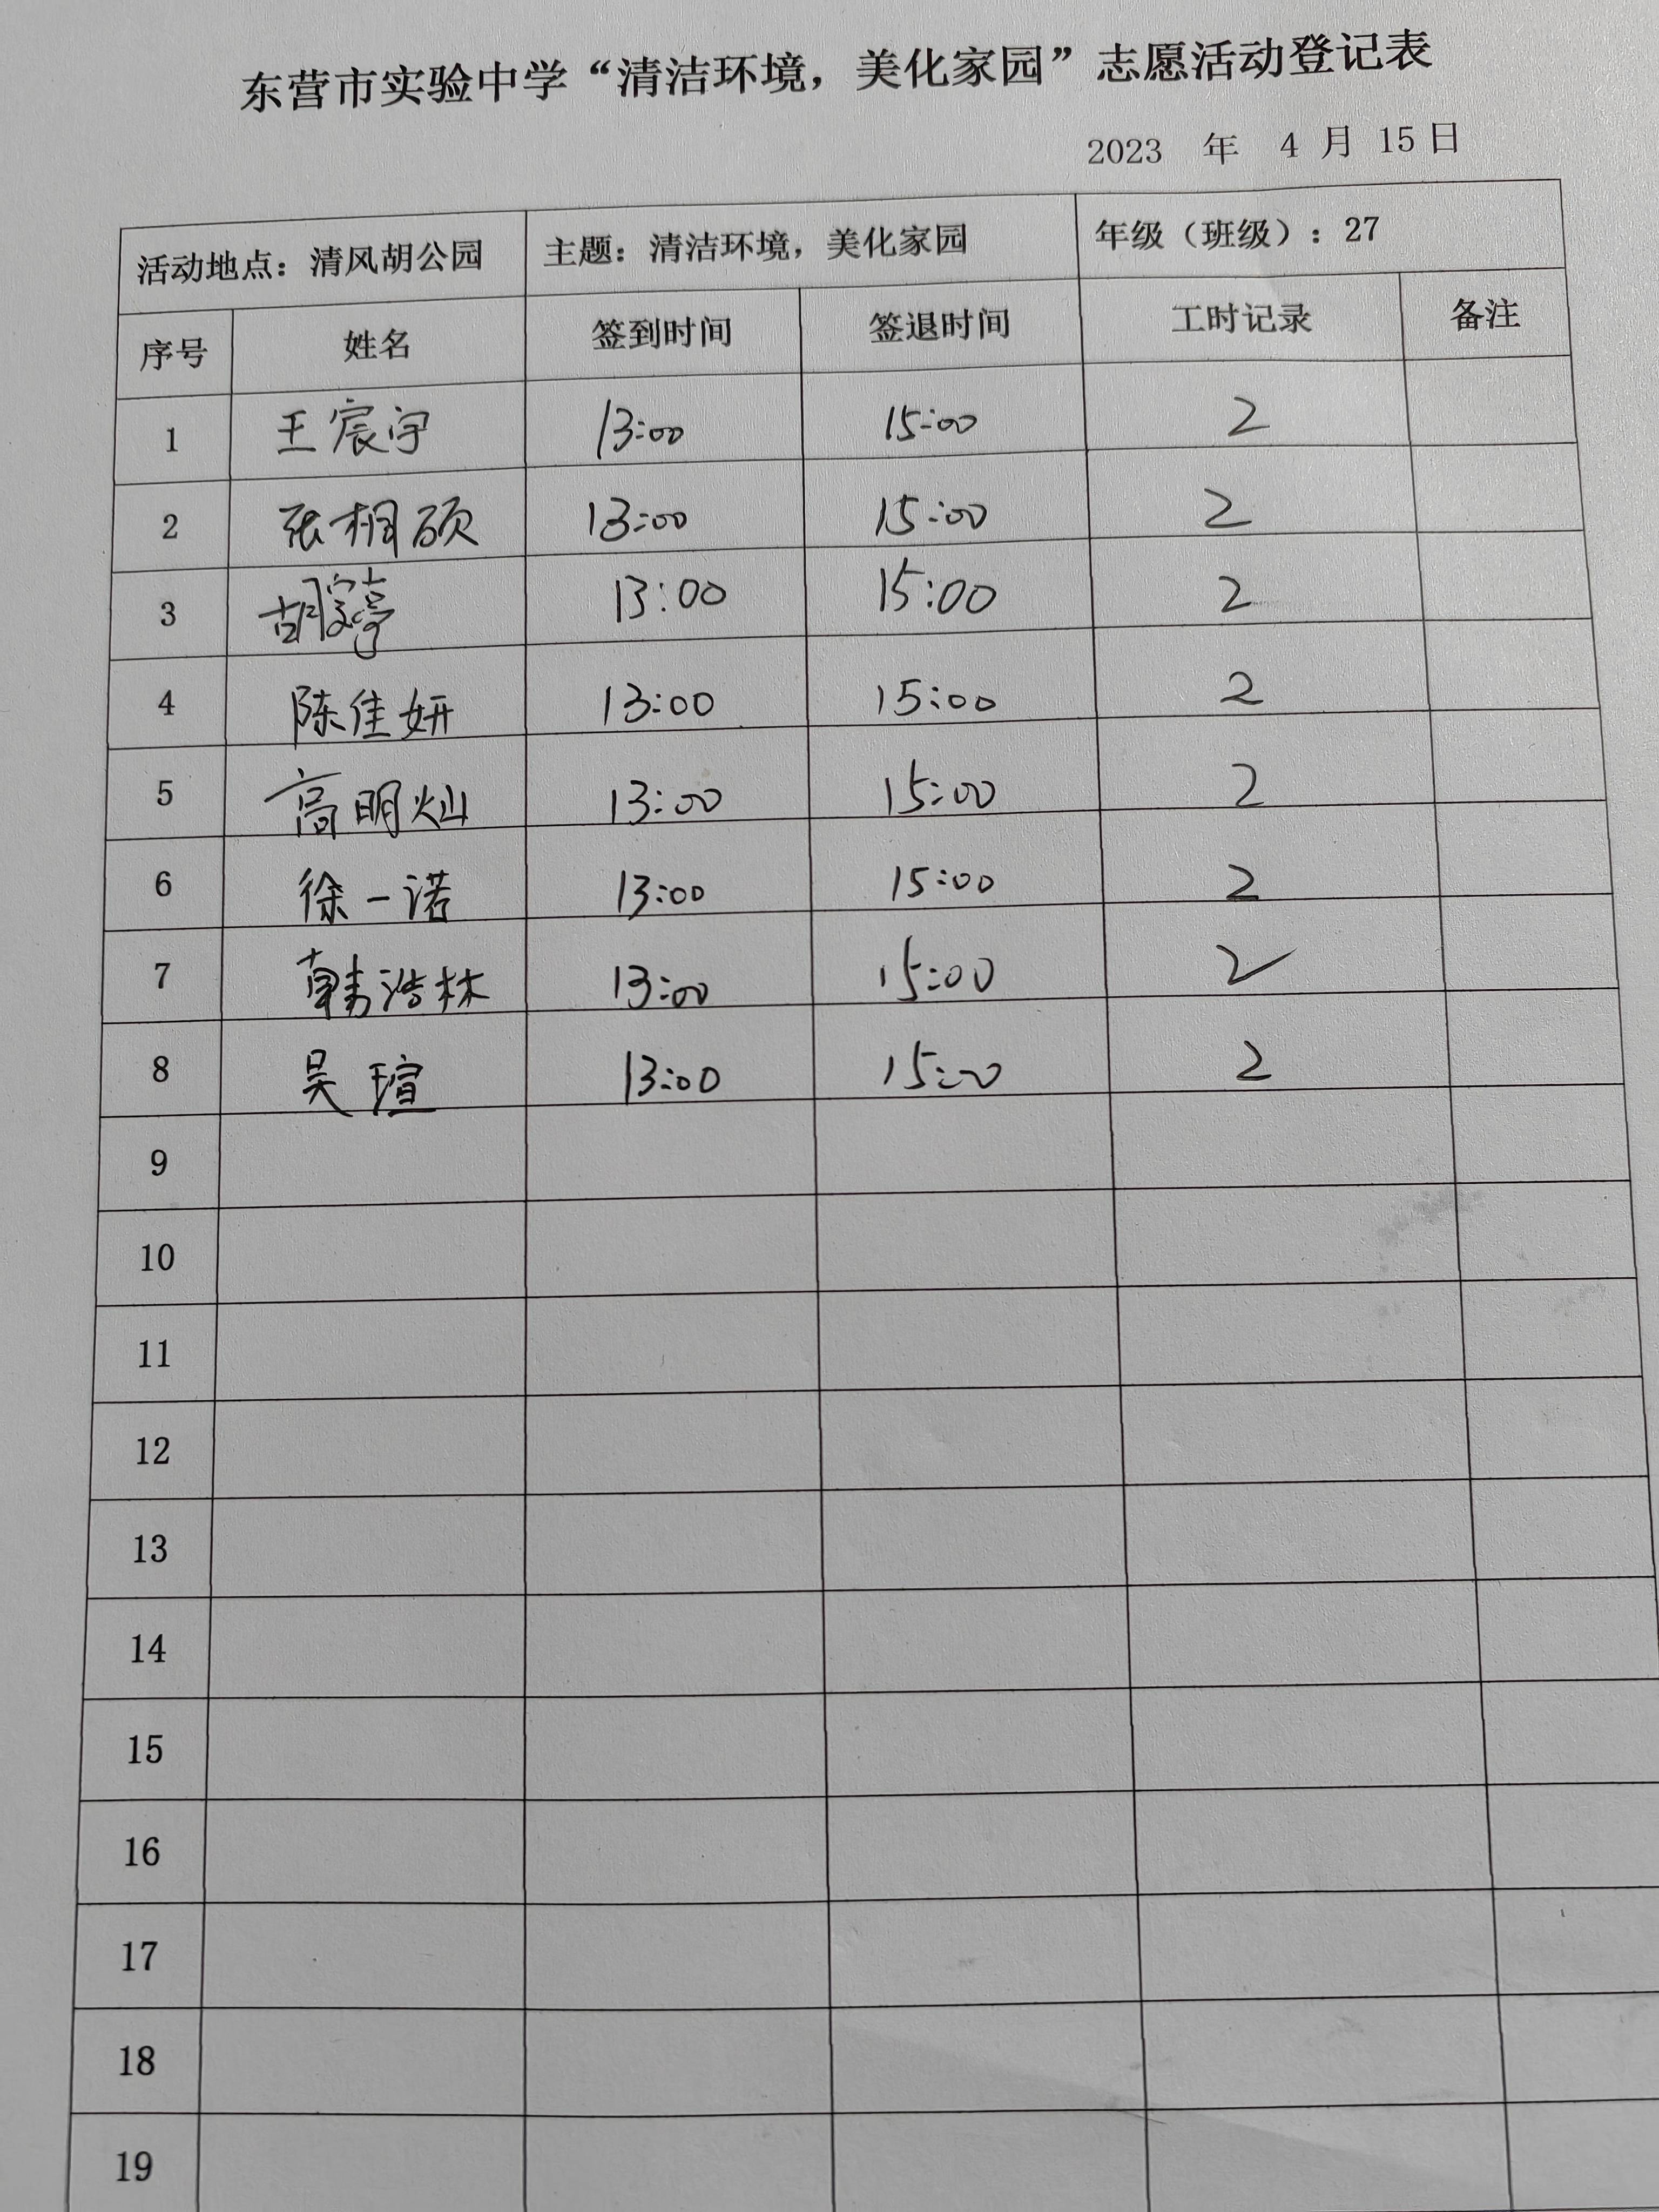 东营市实验中学“清洁环境，美化家园”志愿活动登记表
2023 年 4 月 15 日
活动地点：清风胡公园 主题：清洁环境，美化家园 年级（班级）：27
序号 姓名 签到时间 签退时间 工时记录 备注
1 王宸宇 13:00 15:00 2
2 张桐硕 13:00 15:00 2
3 胡 13:00 15:00 2
4 陈佳妍 13:00 15:00 2
5 高明灿 13:00 15:00 2
6 徐一诺 13:00 15:00 2
7 韩浩林 13:00 15:00 2
8 吴瑄 13:00 15:00 2
9
10
11
12
13
14
15
16
17
18
19